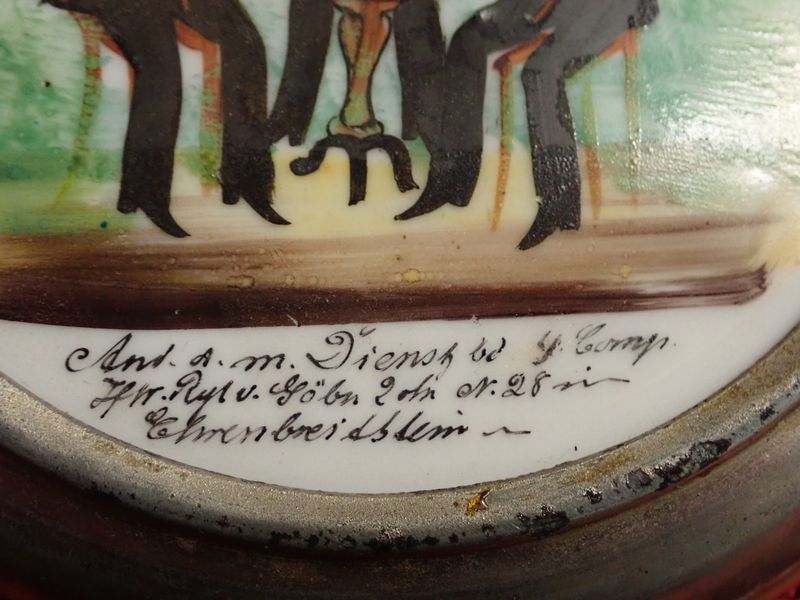 And. a. m. Dienstz bd 9. Comp.
Hr. Rgt v. Göbn 2 rh N. 28 in
Ehrenbreitstein